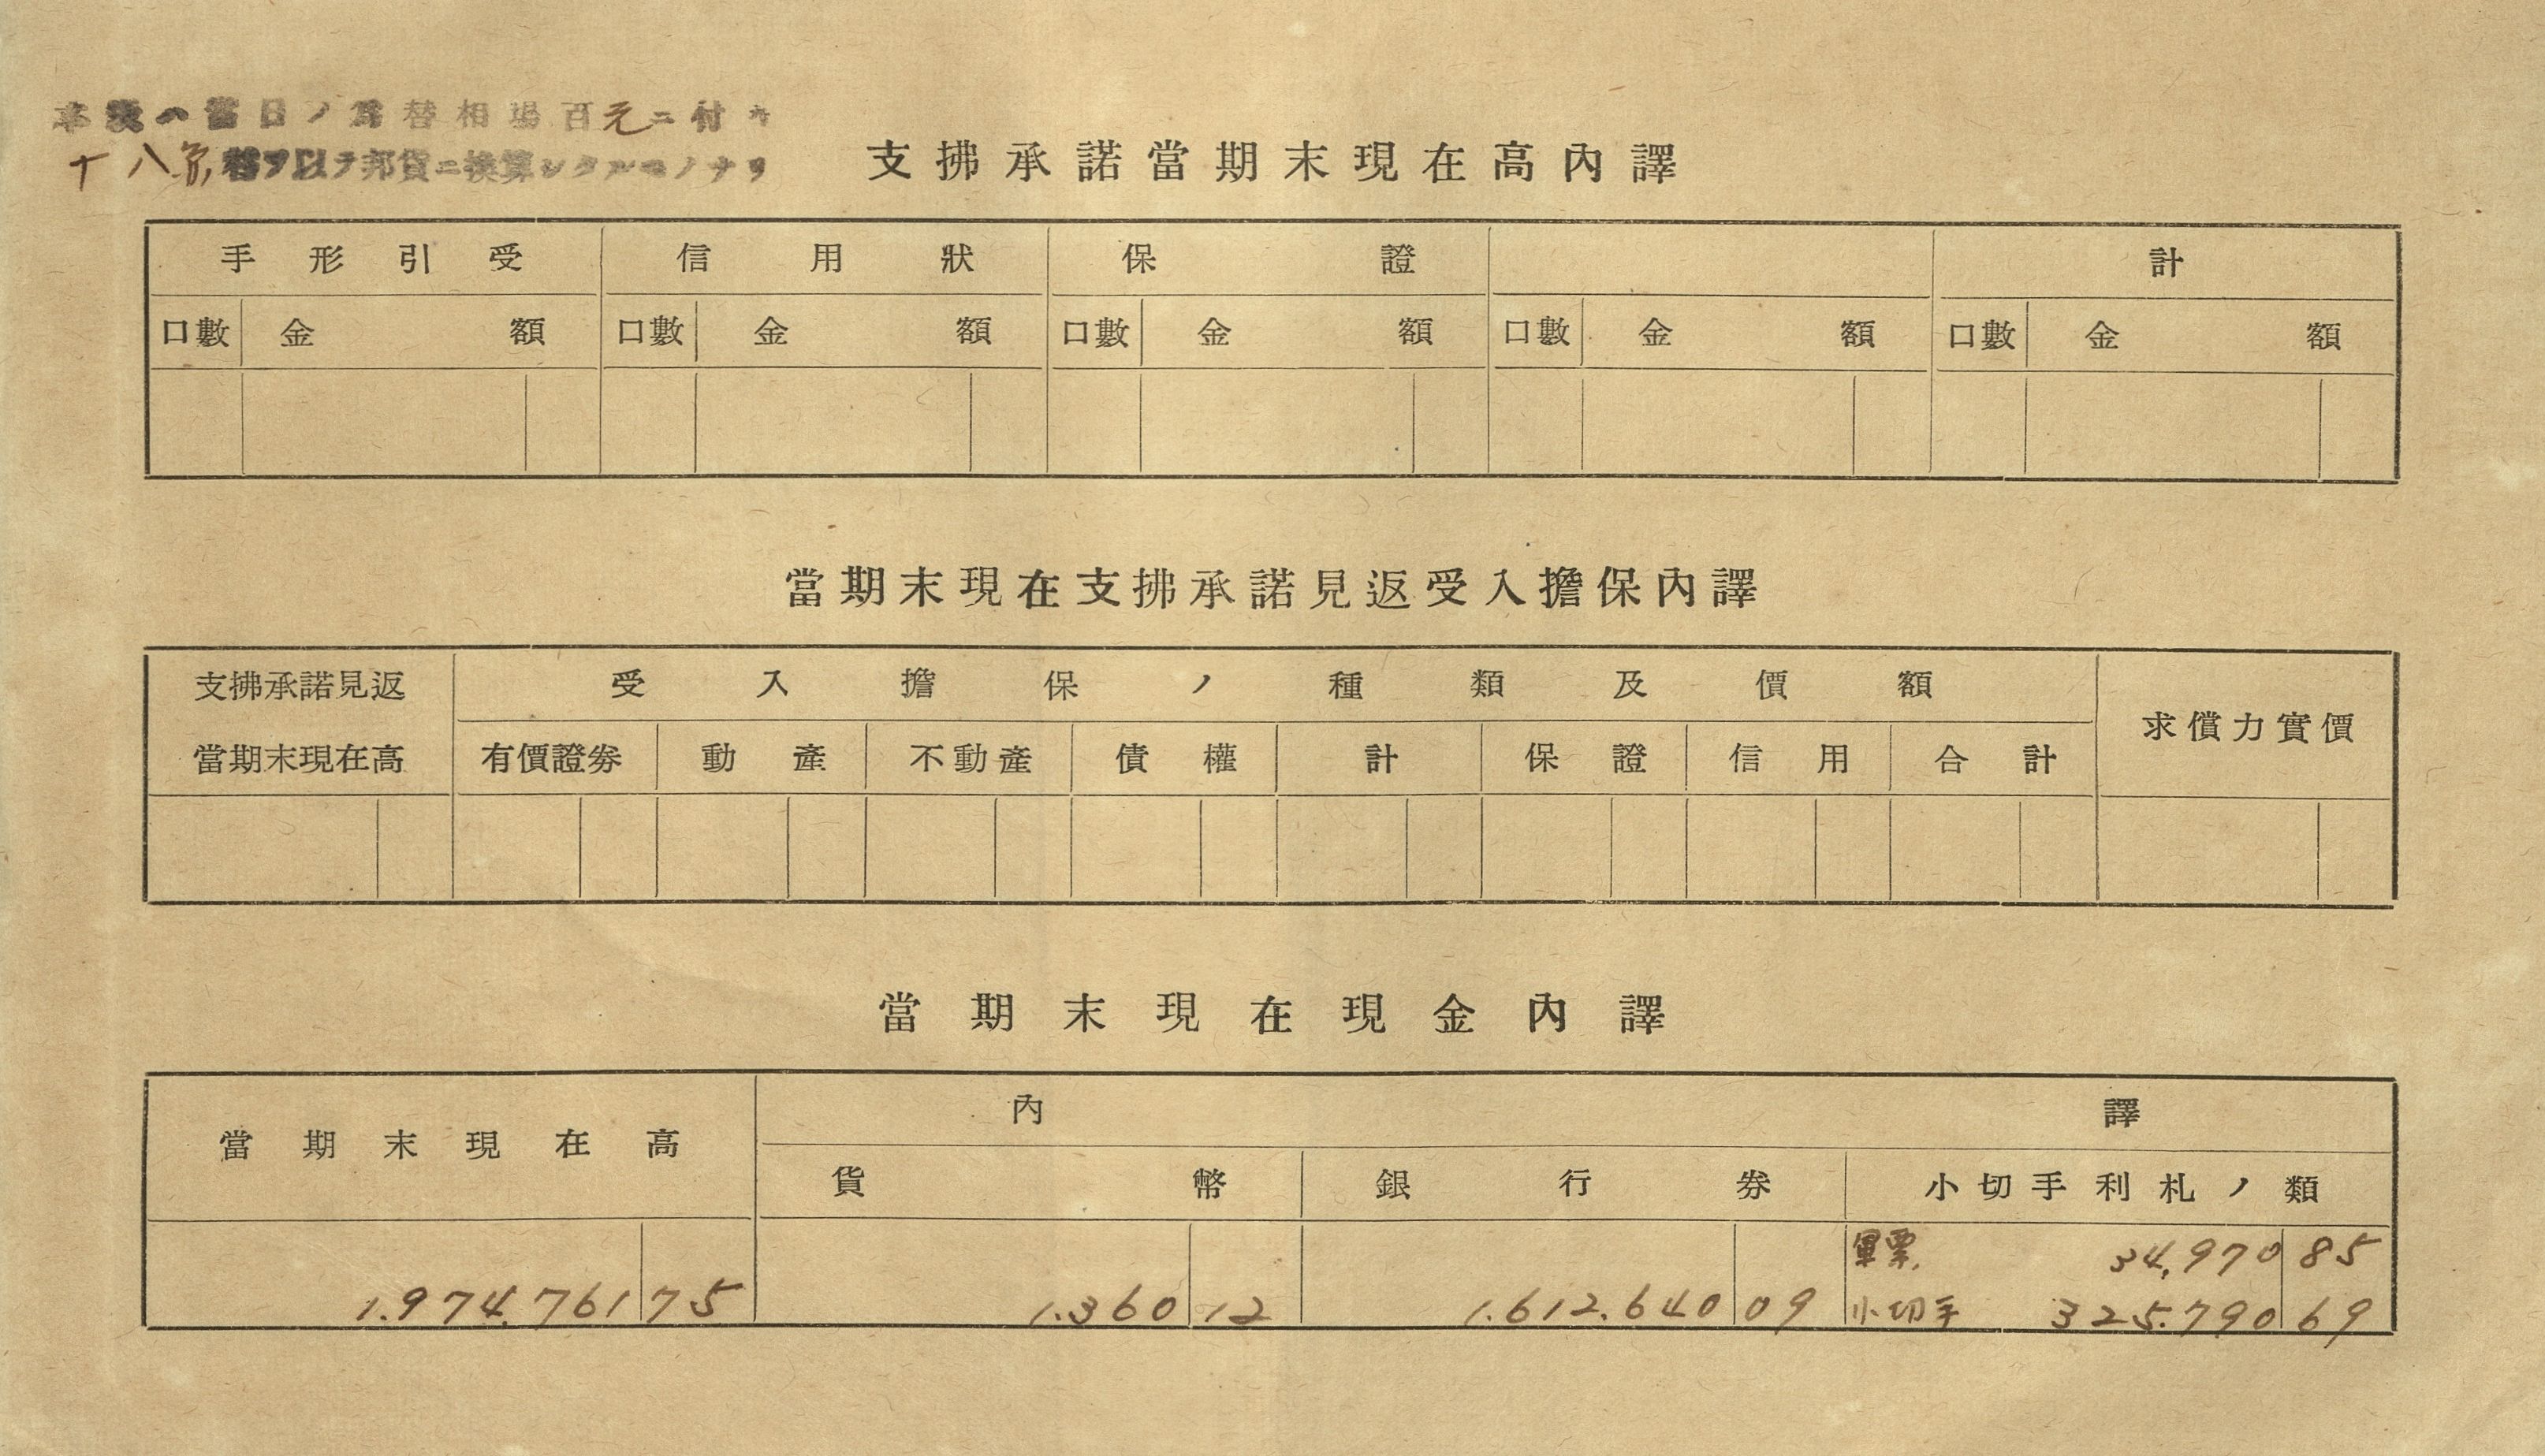 本表ハ當日ノ爲替相場百元ニ付キ
十八弗替ヲ以テ邦貨ニ換算シタルモノナリ
支拂承諾當期末現在高內譯
手形引受 信用狀 保證 計
口數 金額 口數 金額 口數 金額 口數 金額 口數 金額
當期末現在支拂承諾見返受入擔保內譯
支拂承諾見返 受入擔保ノ種類及價額 求償力實價
當期末現在高 有價證券 動產 不動產 債權 計 保證 信用 合計
當期末現在現金內譯
當期末現在高 內譯
貨幣 銀行券 小切手利札ノ類
軍票 34,970 85
1.974.761 75 1.360 12 1.612.640 09 小切手 325.790 69